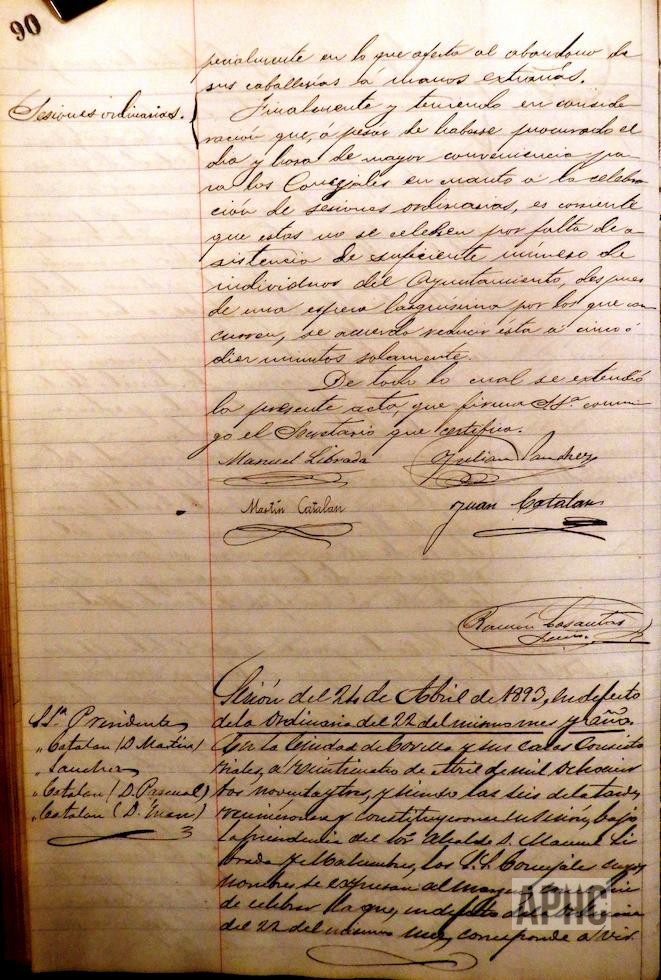 90
Sesiones ordinarias.
pecialmente en lo que afecta al abandono de
sus caballerías á manos extrañas.
Finalmente y teniendo en conside-
ración que, á pesar de haberse procurado el
dia y hora de mayor conveniencia pa-
ra los Concejales en cuanto á la celebra-
ción de sesiones ordinarias, es corriente
que estas no se celebren por falta de a-
sistencia de suficiente número de
individuos del Ayuntamiento, despues
de una espera larguísima por los que con-
curren, se acuerda reducir ésta á cinco ó
diez minutos solamente.
De todo lo cual se extendió
la presente acta, que firma SSª. conmi-
go el Secretario que certifico.
Manuel Librada
Julian Sanchez
Martín Catalan
Juan Catalan
Ramón Lasantas
Srio.
Sesión del 24 de Abril de 1893, en defecto
de la ordinaria del 22 del mismo mes y año.
SSª. Presidente
" Catalan (D. Martin)
" Sanchez
" Catalan (D. Pascual)
" Catalan (D. Juan)
En la Ciudad de Corella y sus casas Consisto-
riales, á veinticuatro de Abril de mil ochocien-
tos noventa y tres, y siendo las seis de la tarde,
reunieronse y constituyeronse en sesión, bajo
la presidencia del Sor. Alcalde D. Manuel Li-
brada y Malumbres, los S.S. Concejales cuyos
nombres se expresan al margen
de celebrar la que, en defecto de la ordinaria
del 22 del mismo mes, corresponde á vir-
APHC